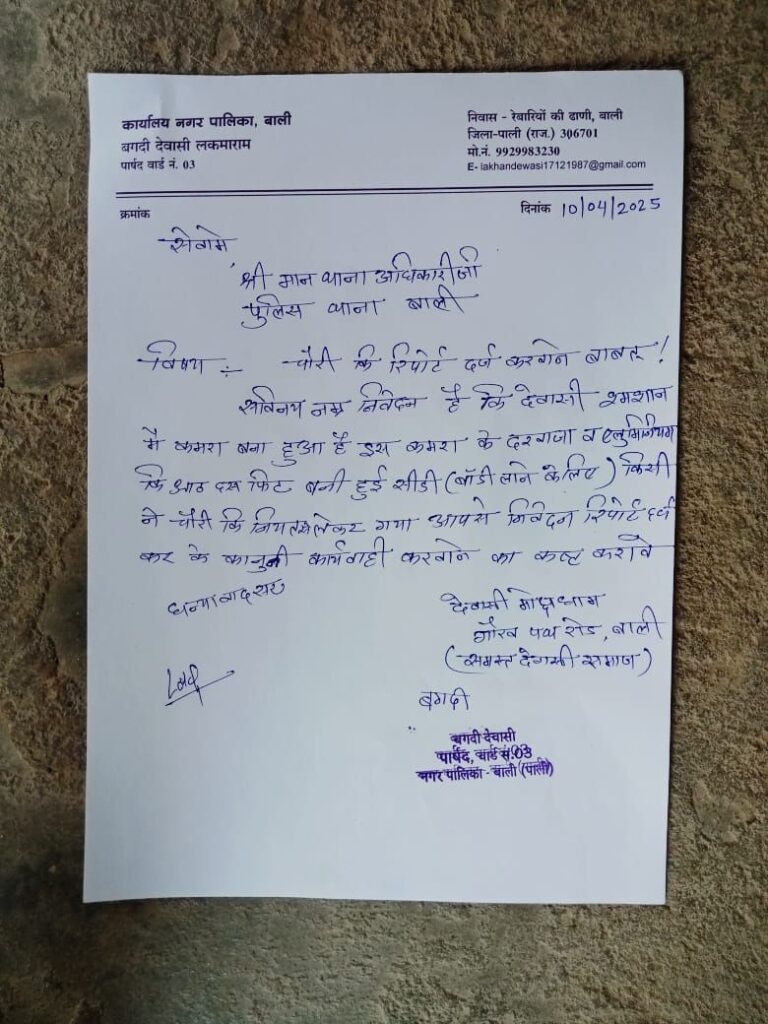 कार्यालय नगर पालिका, बाली
बगदी देवासी लकमाराम
पार्षद वार्ड नं. 03
निवास - रेबारियों की ढाणी, बाली
जिला-पाली (राज.) 306701
मो.नं. 9929983230
E- lakhandewasi17121987@gmail.com
क्रमांक
दिनांक 10/04/2025
सेवामे,
श्री मान थाना अधिकारीजी
पुलिस थाना बाली
विषय :- चौरी कि रिपोर्ट दर्ज करवाने बाबत !
सविनय नम्र निवेदन है कि देवासी श्मशान
मै कमरा बना हुआ है इस कमरा के दरवाजा व एलुमिनियम
कि आठ दस फिट बनी हुई सीडी (बॉडी लाने के लिए) किसी
ने चौरी कि नियतसे लेकर गया आपसे निवेदन रिपोर्ट दर्ज
कर के कानुनी कार्यवाही करवाने का कष्ट करावे
धन्यावाद सर
देवासी मोक्षधाम
गौरव पथ रोड, बाली
(समस्त देवासी समाज)
बगदी
बगदी देवासी
पार्षद, वार्ड सं.03
नगर पालिका - बाली (पाली)